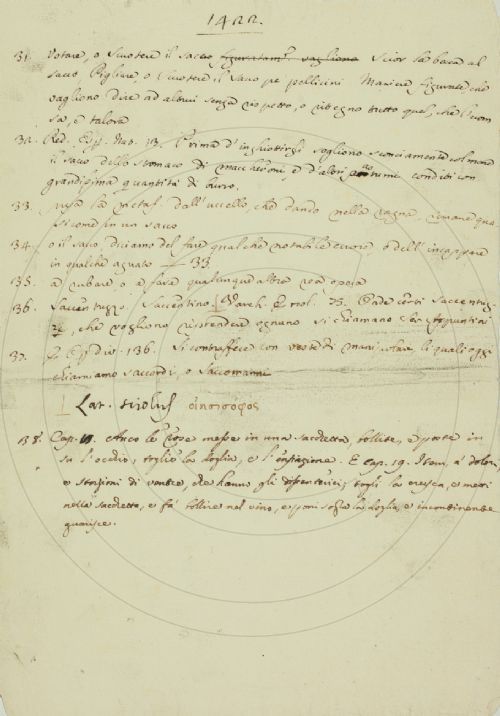 1422.
31. Votare, o Scuotere il sacco figuratam.e vagliono Scior la bocca al
sacco, Pigliare, o Scuotere il sacco pe pellicini Maniere figurate che
vagliono dire ad altrui senza rispetto, o ritegno tutto quel, che l'uom
sa, e talora
32. Red. Esp. Nat. 13. Prima d'inghiottirsi sogliono sconciamente colmarsi
il sacco dello stomaco di maccheroni, e d'altri conditi con
grandissima quantità di burro.
33. presa la metaf. dall'uccello, che dando nella ragna, rimane qua
si come in un sacco
34. o il sacco, diciamo del fare qualche notabile errore, o dell'incappare
in qualche aguato 33.
35. a rubare, o a fare qualunque altra rea opera
36. Saccentuzzo. Saccentino Varch. Ercol. 75. Onde certi Saccentuz
zi, che vogliono riprendere ognuno si chiamano Ser Appuntini
37. 136. Si contraffece con veste di li quali oggi
chiamiamo saccardi, o Saccomanni
Lat. οἰνοτρόφος
138. Cap. 11. Anco le messe in una sacchetta, bollite, e poste in
su l'occhio, toglie la doglia, e l'enfiagione. E cap. 19. Item, a' dolori,
o di ventre, che hanno gli togli la crusca, e metti
nella sacchetta, e fa' bollire nel vino, e poni sopra la doglia, e incontinente
guarisce.